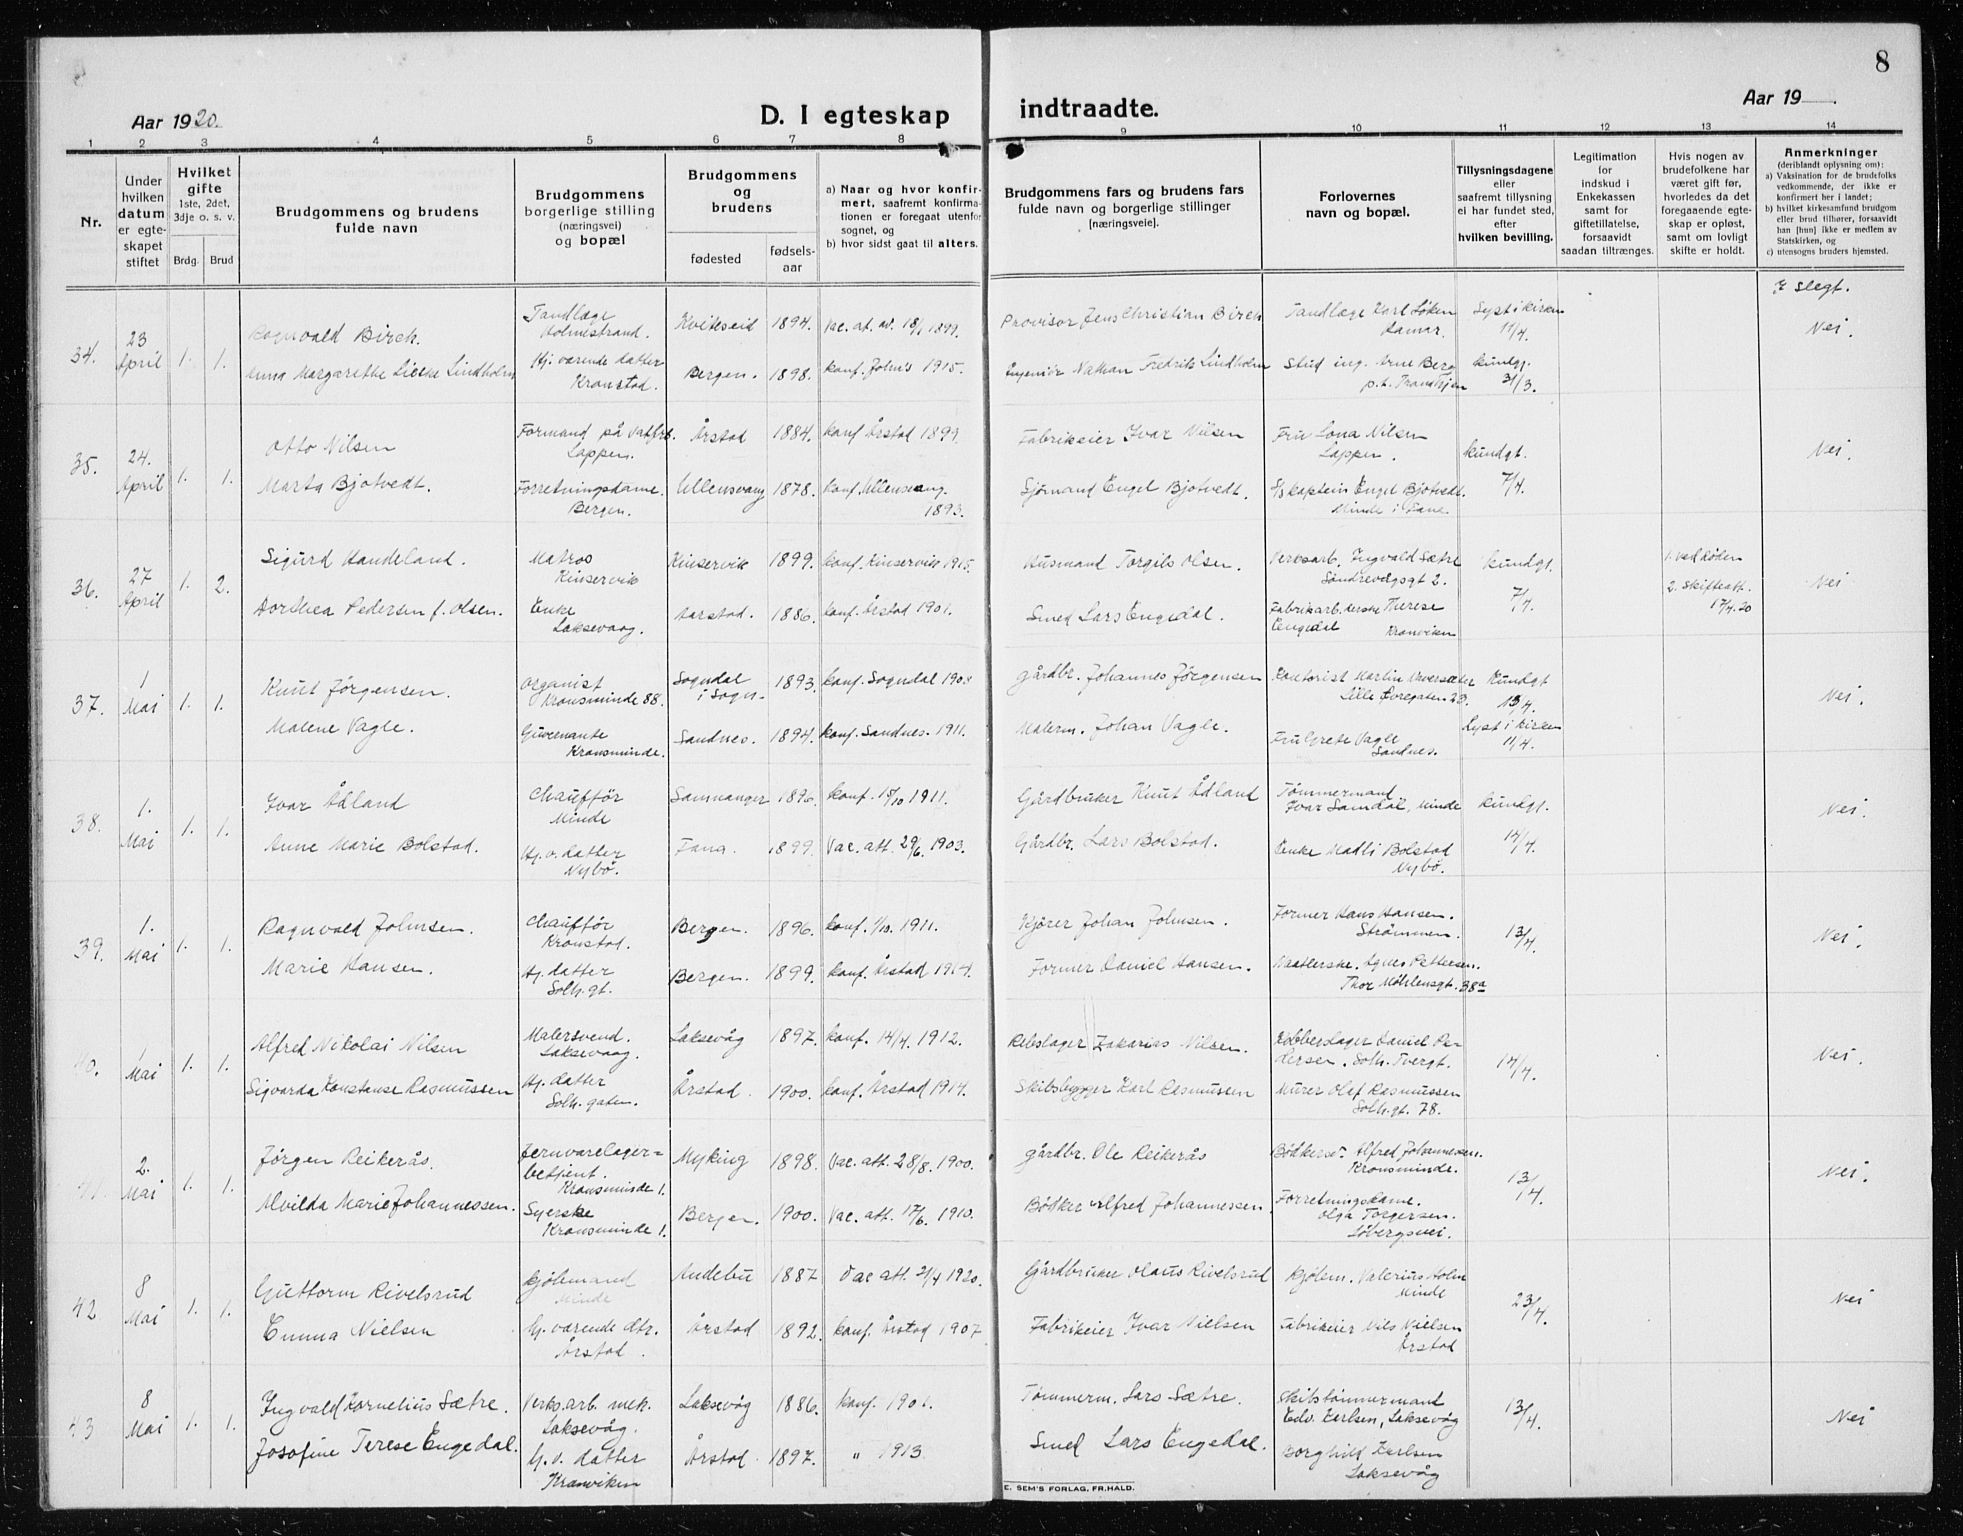 8
Aar 1920.
D. I egteskap indtraadte.
Aar 19
1 2 3 4 5 6 7 8 9 10 11 12 13 14
Nr.
Under hvilken datum er egteskapet stiftet
Hvilket gifte 1ste, 2det, 3dje o. s. v.
Brdg. Brud
Brudgommens og brudens fulde navn
Brudgommens borgerlige stilling (næringsvei) og bopæl
Brudgommens og brudens
fødested
fødselsaar
a) Naar og hvor konfirmert, saafremt konfirmationen er foregaat utenfor sognet, og
b) hvor sidst gaat til alters.
Brudgommens fars og brudens fars fulde navn og borgerlige stillinger [næringsveie].
Forlovernes navn og bopæl.
Tillysningsdagene eller saafremt tillysning ei har fundet sted, efter hvilken bevilling.
Legitimation for indskud i Enkekassen samt for giftetillatelse, forsaavidt saadan tiltrænges.
Hvis nogen av brudefolkene har været gift før, hvorledes da det foregaaende egteskap er opløst, samt om lovligt skifte er holdt.
Anmerkninger (deriblandt oplysning om):
a) Vaksination for de brudefolks vedkommende, der ikke er konfirmert her i landet;
b) hvilket kirkesamfund brudgom eller brud tilhører, forsaavidt han [hun] ikke er medlem av Statskirken, og
c) utensogns bruders hjemsted.
I slegt.
34. 23 April 1. 1.
Ragnvald Birch. Tandlæge Holmestrand. Kviteseid 1894. Vac. at. av. 18/1 1899. Provisor Jens Christian Birch Tandlæge Karl Løken Hamar. Lyst i kirken 11/4. Nei.
Anna Margarethe Lindholm Hj. værende datter Kronstad. Bergen. 1898. konf. Johs 1915. Ingeniør Nathan Fredrik Lindholm Stud ing. Arne Berg p.t. Trondhjem kundgj. 31/3.
35. 24. April 1. 1.
Otto Nilsen Formand på Lappen. Årstad 1884. konf Årstad 1899. Fabrikeier Ivar Nilsen Fru Lona Nilsen Lappen. kundgt. 7/4. Nei.
Marta Bjotvedt. Forretningsdame. Bergen. Ullensvang 1878. konf. Ullensvang. 1893. Sjømand Engel Bjotvedt. S/skaptein Engel Bjotvedt. Minde i Fane
36. 27 April 1. 2.
Sigurd Handeland. Matros Kinservik Kinservik 1899. konf. Kinservik 1915. Husmand Torgils Olsen. Verksarb. Ingvald Sætre Søndrevegsgt 2. kundgt. 7/4. 1. ved døden 2. Skifteatt. 17/4.20 Nei
Dorthea Pedersen f. Olsen. Enke Laksevaag. Aarstad. 1886. konf. Årstad 1901. Smed Lars Engedal. Fabrikarb.derske Therese Engedal Kronviken
37. 1 Mai 1. 1.
Knut Jørgensen. Organist Kronsminde 88. Sogndal i Sogn. 1893. konf. Sogndal 1908 gårdbr. Johannes Jørgensen Kontorist Martin Lille Øvregaten 23. Kundgt 13/4. Nei.
Malene Vagle. Guvernante Kronsminde. Sandnes. 1894. konf. Sandnes. 1911. Malerm. Johan Vagle. Fru Grete Vagle Sandnes. Lyst i kirken 11/4.
38. 1. Mai 1. 1.
Ivar Ådland Chauffør Minde Samnanger 1896. konf. 15/10 1911. Gårdbruker Knut Ådland Tømmermand Ivar Samdal, Minde kundgt. 14/4. Nei.
Anne Marie Bolstad. Hj. v. datter Nybø. Fana. 1899. Vac. att. 29/6. 1903. Gårdbr. Lars Bolstad. Enke Madli Bolstad Nybø.
39. 1. Mai 1. 1.
Ragnvald Johnsen. Chauffør Kronstad. Bergen. 1896. konf. 1/10. 1911. Kjører Johan Johnsen. Former Hans Hansen. Strømmen. 13/4. Nei.
Marie Hansen. Hj. datter Solh. gt. Bergen. 1899. konf. Årstad 1914. Former Daniel Hansen. Agnes Pettersen. Thor Møhlensgt. 38a
40. 1 Mai 1. 1.
Alfred Nikolai Nilsen Malersvend. Laksevaag. Laksevåg 1897. konf. 14/4. 1912. Rebslager Zakarias Nilsen. Kobberslager Daniel Pedersen. Solh. Tvergt. 14/4. Nei.
Sigvarda Konstanse Rasmussen Hj. datter Solh. gaten. Årstad. 1900. konf. Årstad 1914. Skibsbygger Karl Rasmussen Murer Olaf Rasmussen Solh.gt. 78.
41. 2. Mai 1. 1.
Jørgen Reikerås. Jernvarelagerbetjent. Kronsminde 1. Myking 1898. Vac. att. 28/8. 1900. gårdbr. Ole Reikerås Bødkersv. Alfred Johannessen. Kronsminde. 13/4. Nei.
Alvilda Marie Johannessen. Syerske Kronsminde 1. Bergen. 1900. Vac. att. 17/6. 1910. Bødker Alfred Johannessen. Forretningsdame. Olga Torgersen. Løbergsvei.
42 8 Mai 1. 1.
Guttorm Rivelsrud kjøbmand Minde Andebu 1887 Vac att. 21/4 1920. Gårdbruker Olaus Rivelsrud kjøbm. Valerius Holm Minde 23/4. Nei
Emma Nielsen Hj. værende dtr. Årstad. Årstad 1892. konf. Årstad 1907 Fabrikeier Ivar Nielsen Fabrikeier Nils Nielsen Årstad
43 8 Mai 1. 1.
Ingvald Kornelius Sætre. Verks.arb. mek. Laksevåg. Laksevåg 1886. konf. 1901. Tømmerm. Lars Sætre. Skibstømmermand Edv. Karlsen, Laksevåg 13/4. Nei
Josefine Terese Engedal. Hj. v. datter Kronviken Årstad. 1897. " 1913. Smed Lars Engedal. Borghild Karlsen Laksevåg
E. SEM'S FORLAG, FR.HALD.